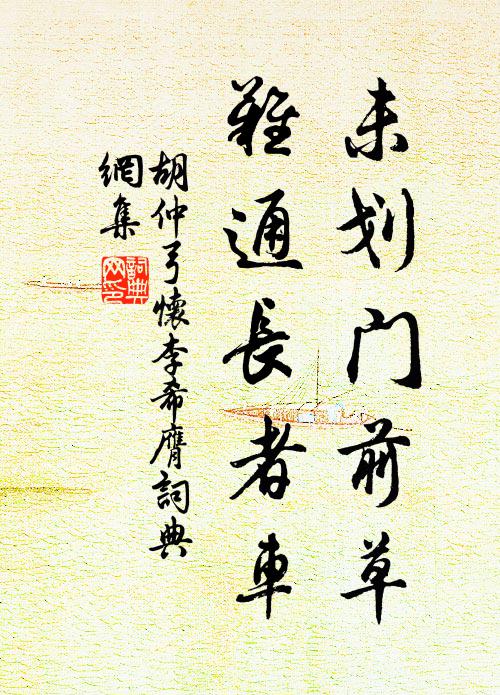 未划门前草
難通長者車
胡仲弓懷李希膺詞典
網集
詞典
网印